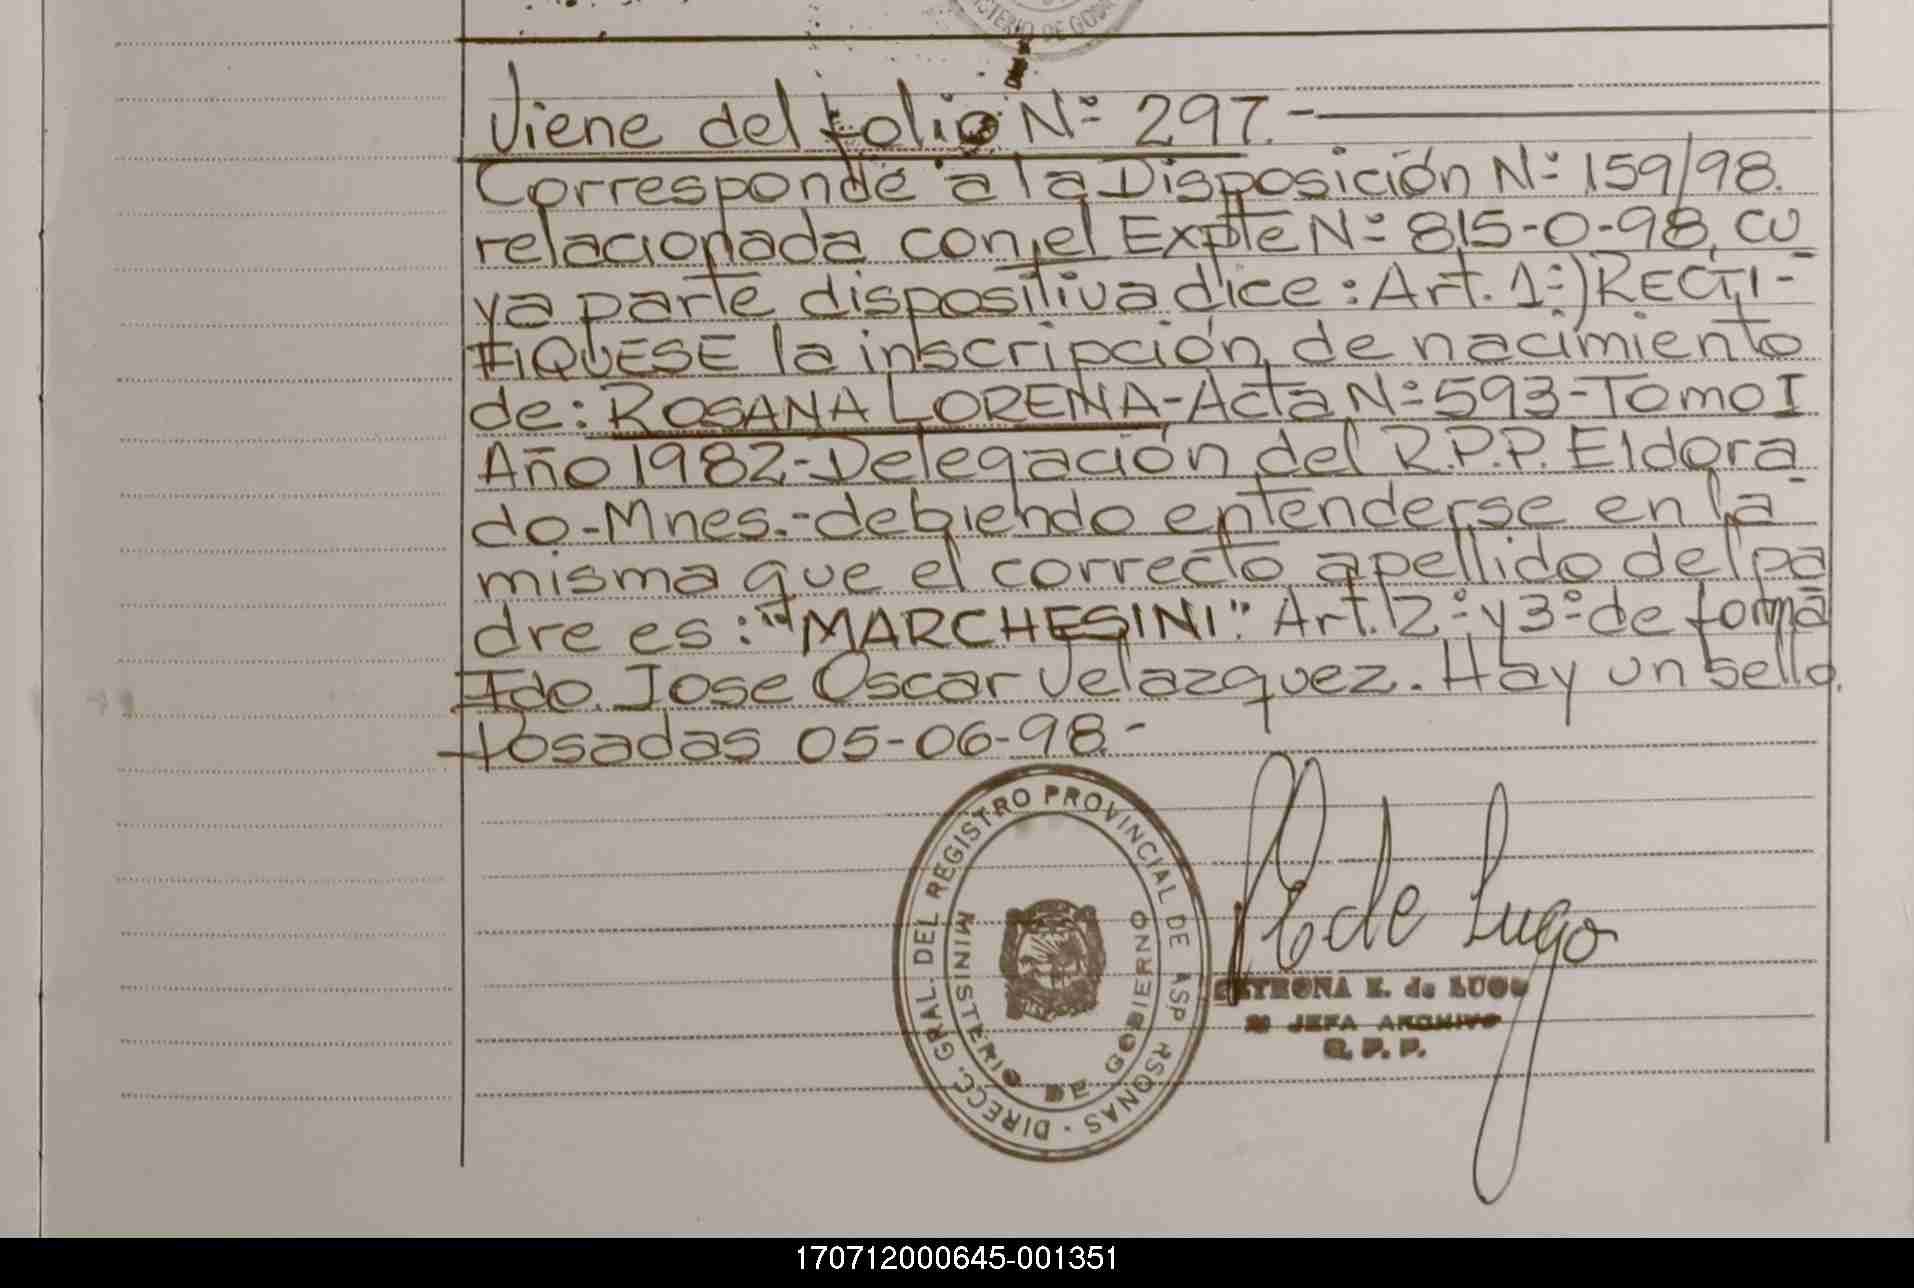 MINISTERIO DE GOB
Viene del folio Nº 297.-
Corresponde a la Disposición Nº 159/98.
relacionada con el Expte Nº 815-0-98, cu
ya parte dispositiva dice: Art. 1º) RECTI-
FIQUESE la inscripción de nacimiento
de: ROSANA LORENA-Acta Nº 593-Tomo I
Año 1982-Delegación del R.P.P. Eldora
do-Mnes.-debiendo entenderse en la
misma que el correcto apellido del pa
dre es: "MARCHESINI". Art. 2º y 3º de forma
Fdo. Jose Oscar Velazquez. Hay un sello.
Posadas 05-06-98.-
DIRECC. GRAL. DEL REGISTRO PROVINCIAL DE ASP RSONAS
MINISTERIO DE GOBIERNO
PE de Lugo
PETRONA E. de LUGO
JEFA ARCHIVO
R. P. P.
170712000645-001351